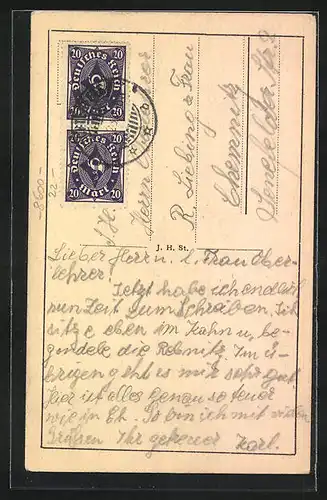 Deutsches Reich
20 20
20 Mark 20
Deutsches Reich
20 20
20 Mark 20
S.H.
Herrn
R. Liebing u. Frau
Chemnitz
J. H. St.
Lieber Herr u. l. Frau Ober-
lehrer!
Jetzt habe ich endlich
nun Zeit zum Schreiben. Ich
sitze eben im Kahn u. be-
gondele die Im ü-
brigen geht es mir sehr gut
hier ist alles genau so teuer
wie in Ch. So bin ich mit vielen
Grüßen Ihr getreuer Karl.